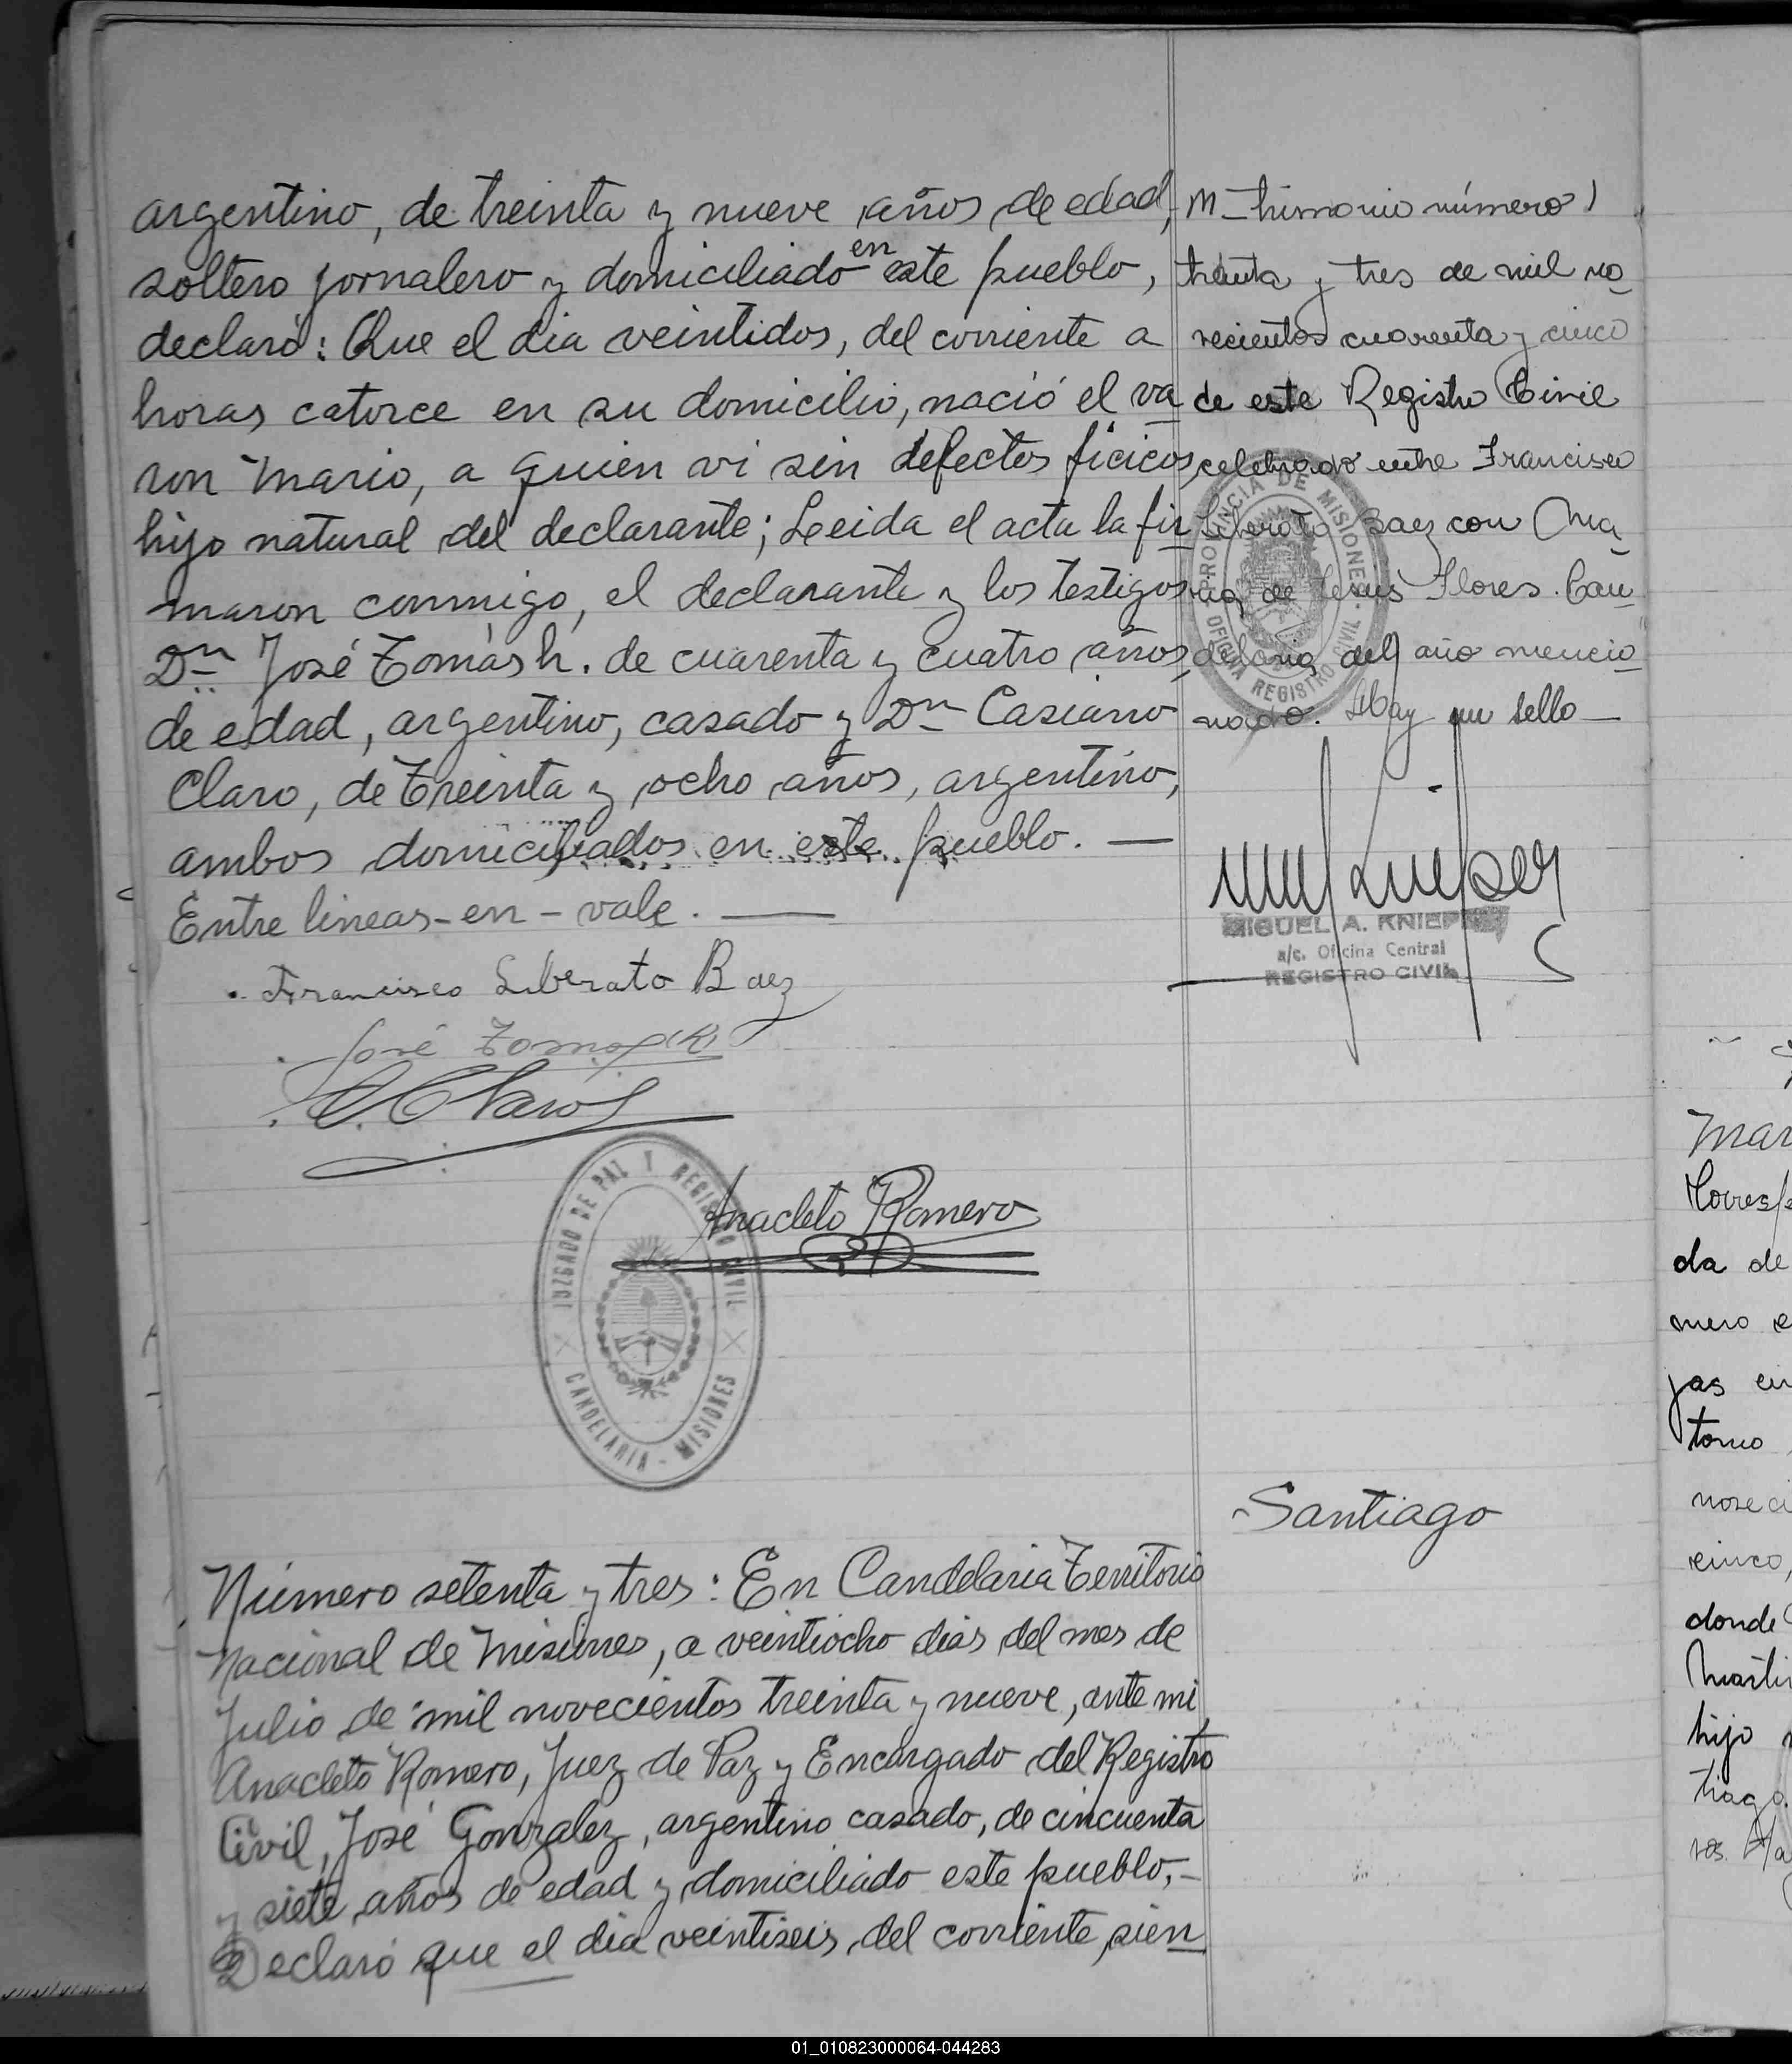 argentino, de treinta y nueve años de edad,
soltero jornalero y domiciliado en este pueblo,
declaró: Que el dia veintidos, del corriente a
horas catorce en su domicilio, nació el va
ron Mario, a quien vi sin defectos ficicos,
hijo natural del declarante; Leida el acta la fir
maron conmigo, el declarante y los testigos
Dn José Tomás h. de cuarenta y cuatro años,
de edad, argentino, casado y Dn Casiano
Claro, de treinta y ocho años, argentino,
ambos domiciliados en este pueblo. —
Entre lineas-en-vale. —
Francisco Liberato Baez
José Tomas
C. Claro
JUZGADO DE PAZ Y REGISTRO CIVIL
CANDELARIA - MISIONES
Anacleto Romero
M_trimonio número
treinta y tres de mil no
vecientos cuarenta y cinco
de este Registro Civil
celebrado entre Francisco
Liberato Baez con Ma
ria de Jesús Flores. Can
delaria del año mencio
nado. Hay un sello —
PROVINCIA DE MISIONES
OFICINA REGISTRO CIVIL
MIGUEL A. KNIEP
a/c. Oficina Central
REGISTRO CIVIL
Santiago
Número setenta y tres: En Candelaria Territorio
Nacional de Misiones, a veintiocho dias del mes de
Julio de mil novecientos treinta y nueve, ante mi,
Anacleto Romero, Juez de Paz y Encargado del Registro
Civil, José Gonzalez, argentino casado, de cincuenta
y siete años de edad y domiciliado este pueblo,-
Declaró que el dia veintiseis, del corriente, sien
Mar
Corresp
da de
mero e
jas en
tomo
novec
cinco,
donde
Marti
hijo
tiago.
01_010823000064-044283